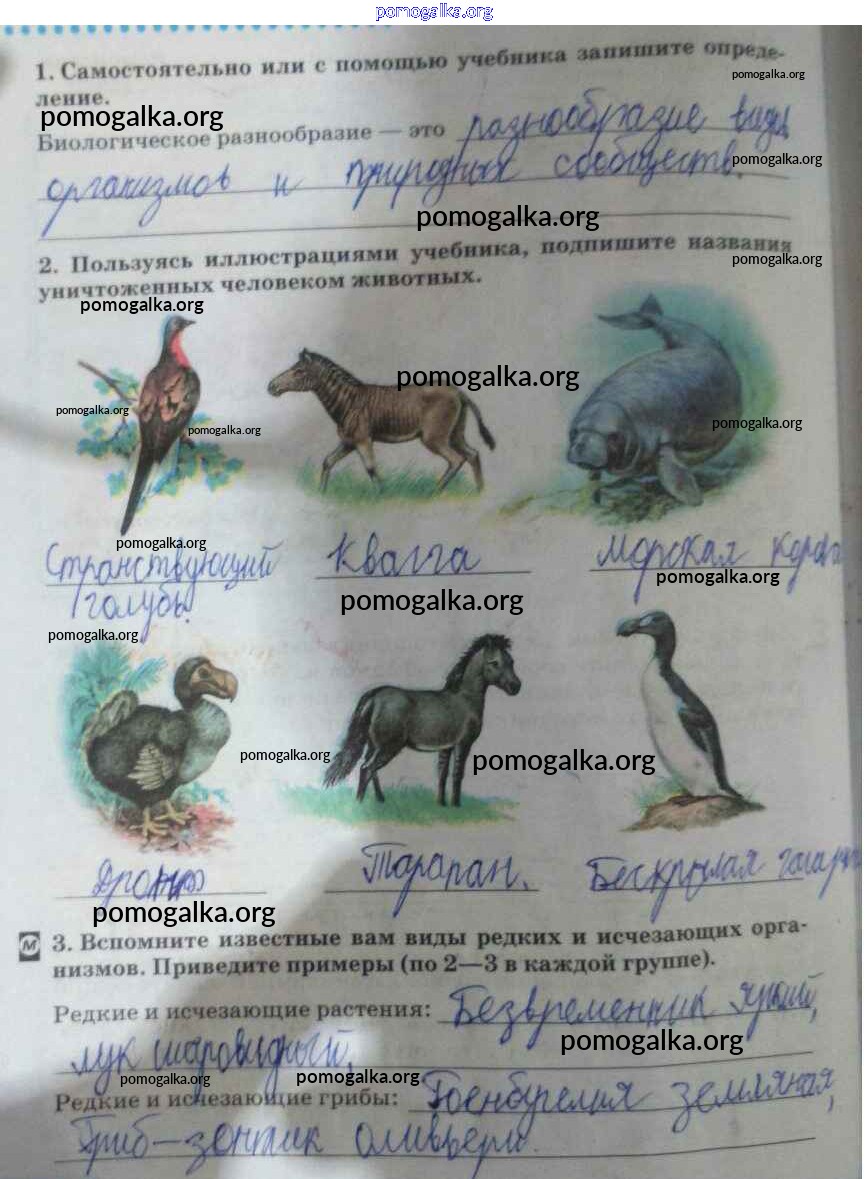 pomogalka.org
1. Самостоятельно или с помощью учебника запишите опреде-
pomogalka.org
ление.
pomogalka.org
Биологическое разнообразие — это разнообразие виды
pomogalka.org
организмов и природных сообществ.
pomogalka.org
2. Пользуясь иллюстрациями учебника, подпишите названия
pomogalka.org
уничтоженных человеком животных.
pomogalka.org
pomogalka.org
pomogalka.org
pomogalka.org
pomogalka.org
pomogalka.org
Странствующий Квагга Морская корова
pomogalka.org
голубь.
pomogalka.org
pomogalka.org
pomogalka.org
pomogalka.org
Тарапан. Бескрылая
pomogalka.org
М 3. Вспомните известные вам виды редких и исчезающих орга-
низмов. Приведите примеры (по 2—3 в каждой группе).
Редкие и исчезающие растения: Безвременник яркий,
pomogalka.org
лук шаровидный.
pomogalka.org pomogalka.org
Редкие и исчезающие грибы: Гоенбуелия земляная,
Гриб-зонтик оливьери.